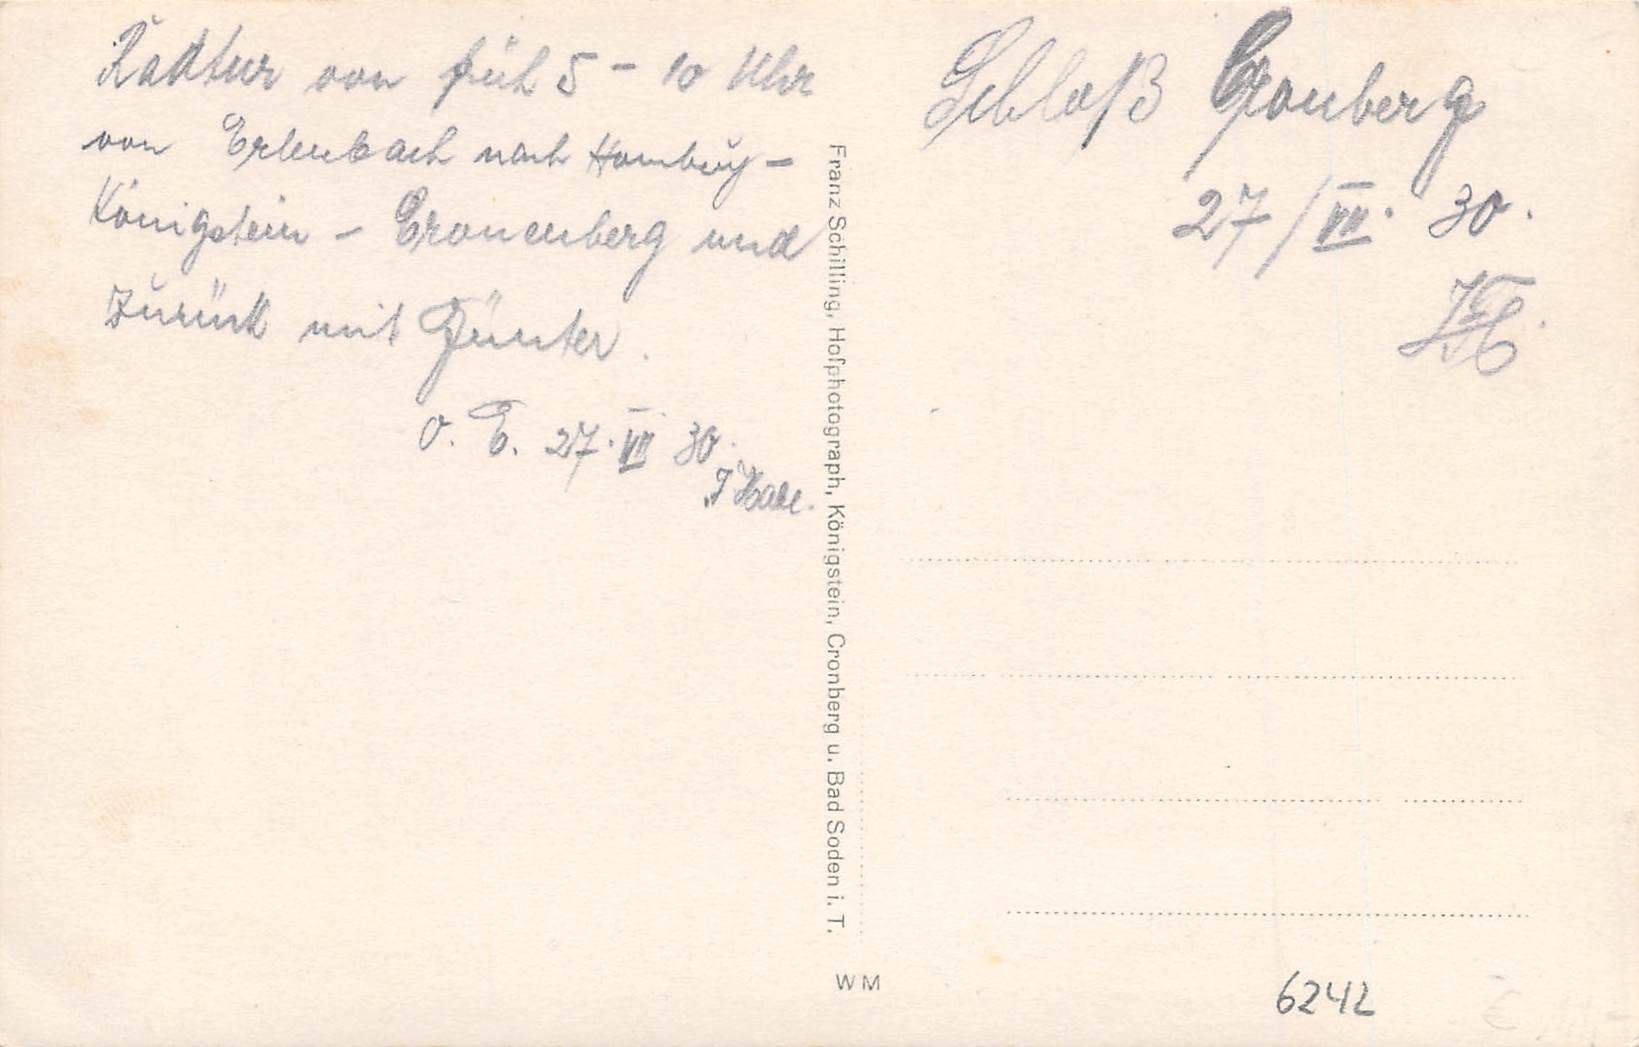 Radtur von früh 5 - 10 Uhr
von Erlenbach nach Homburg -
Königstein - Cronenberg und
Zurück mit Günter.
O. E. 27. VII 30.
Schloß Cronberg
27/VII. 30.
Franz Schilling, Hofphotograph, Königstein, Cronberg u. Bad Soden i. T.
WM
6242